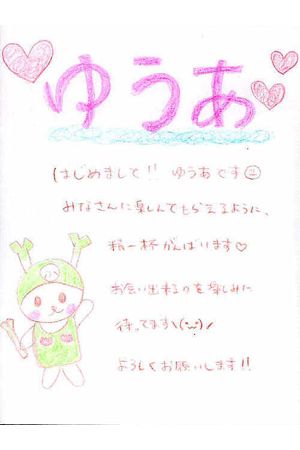 ゆうあ
はじめまして!! ゆうあです☺
みなさんに楽しんでもらえるように、
精一杯がんばります♡
お会い出来るのを楽しみに
待ってます\(^^)/
よろしくお願いします!!